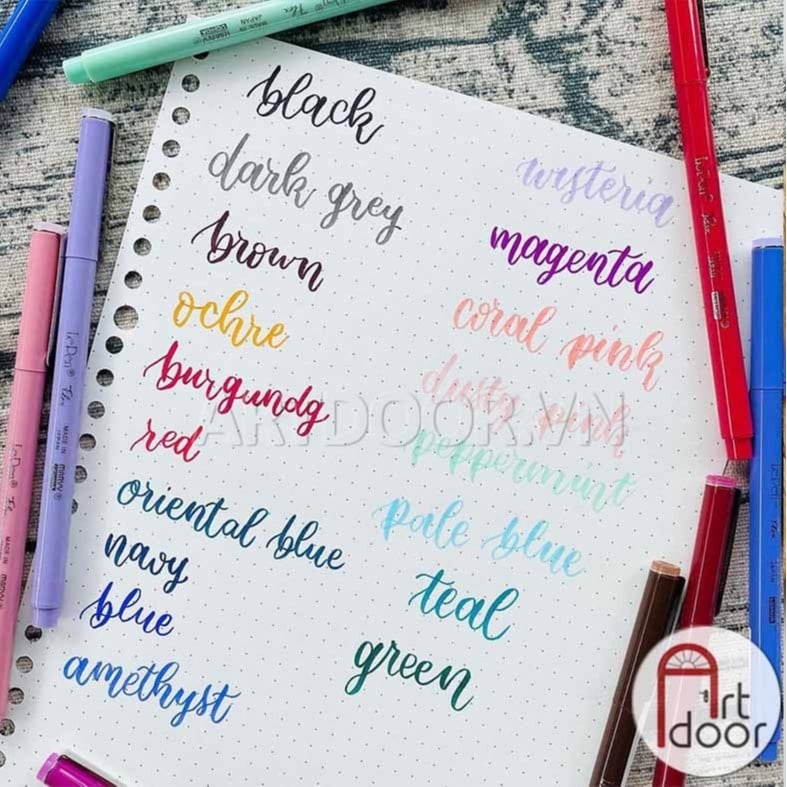 black
dark grey
brown
ochre
burgundg
red
oriental blue
navy
blue
amethyst
wisteria
magenta
coral pink
dusty pink
peppermint
pale blue
teal
green
ARTDOOR.VN
Art
door
LePen® Flex
MADE IN
JAPAN